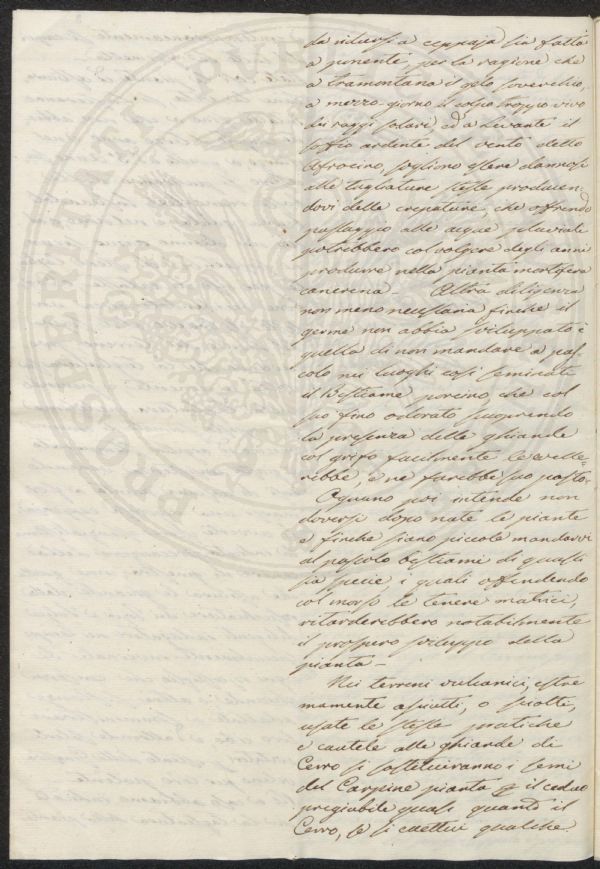 da ridursi a ceppaja sia fatto
a ponente, per la ragione che
a tramontana il gelo soverchio,
a mezzo-giorno il colpo troppo vivo
dei raggi solari, ed a levante il
soffio ardente del vento detto
Afrocino, sogliono essere dannosi
alle tagliature stesse producen-
dovi delle crepature, che offrendo
passaggio alle acque pluviali
potrebbero col volgere degli anni
produrre nella pianta mortifera
cancrena - Altra diligenza
non meno necessaria finche il
germe non abbia sviluppato è
quella di non mandare a pas-
colo nei luoghi così seminati
il Bestiame porcino, che col
suo fino odorato scuoprendo
la presenza delle ghiande
col grifo facilmente le svelle-
rebbe, e ne farebbe suo pasto -
Ognuno poi intende non
doversi dopo nate le piante
e finche siano piccole mandarvi
al pascolo bestiami di qualsi
sia specie i quali offendendo
col morso le tenere matrici,
ritarderebbero notabilmente
il prospero sviluppo della
pianta -
Nei terreni vulcanici, estre
mamente asciutti, o sciolti,
usate le stesse pratiche
e cautele alle ghiande di
Cerro si sostituiranno i semi
del Carpine pianta p il ceduo
pregiabile quasi quanto il
Cerro, se si eccettui qualche
PROSPERITATI PUBL